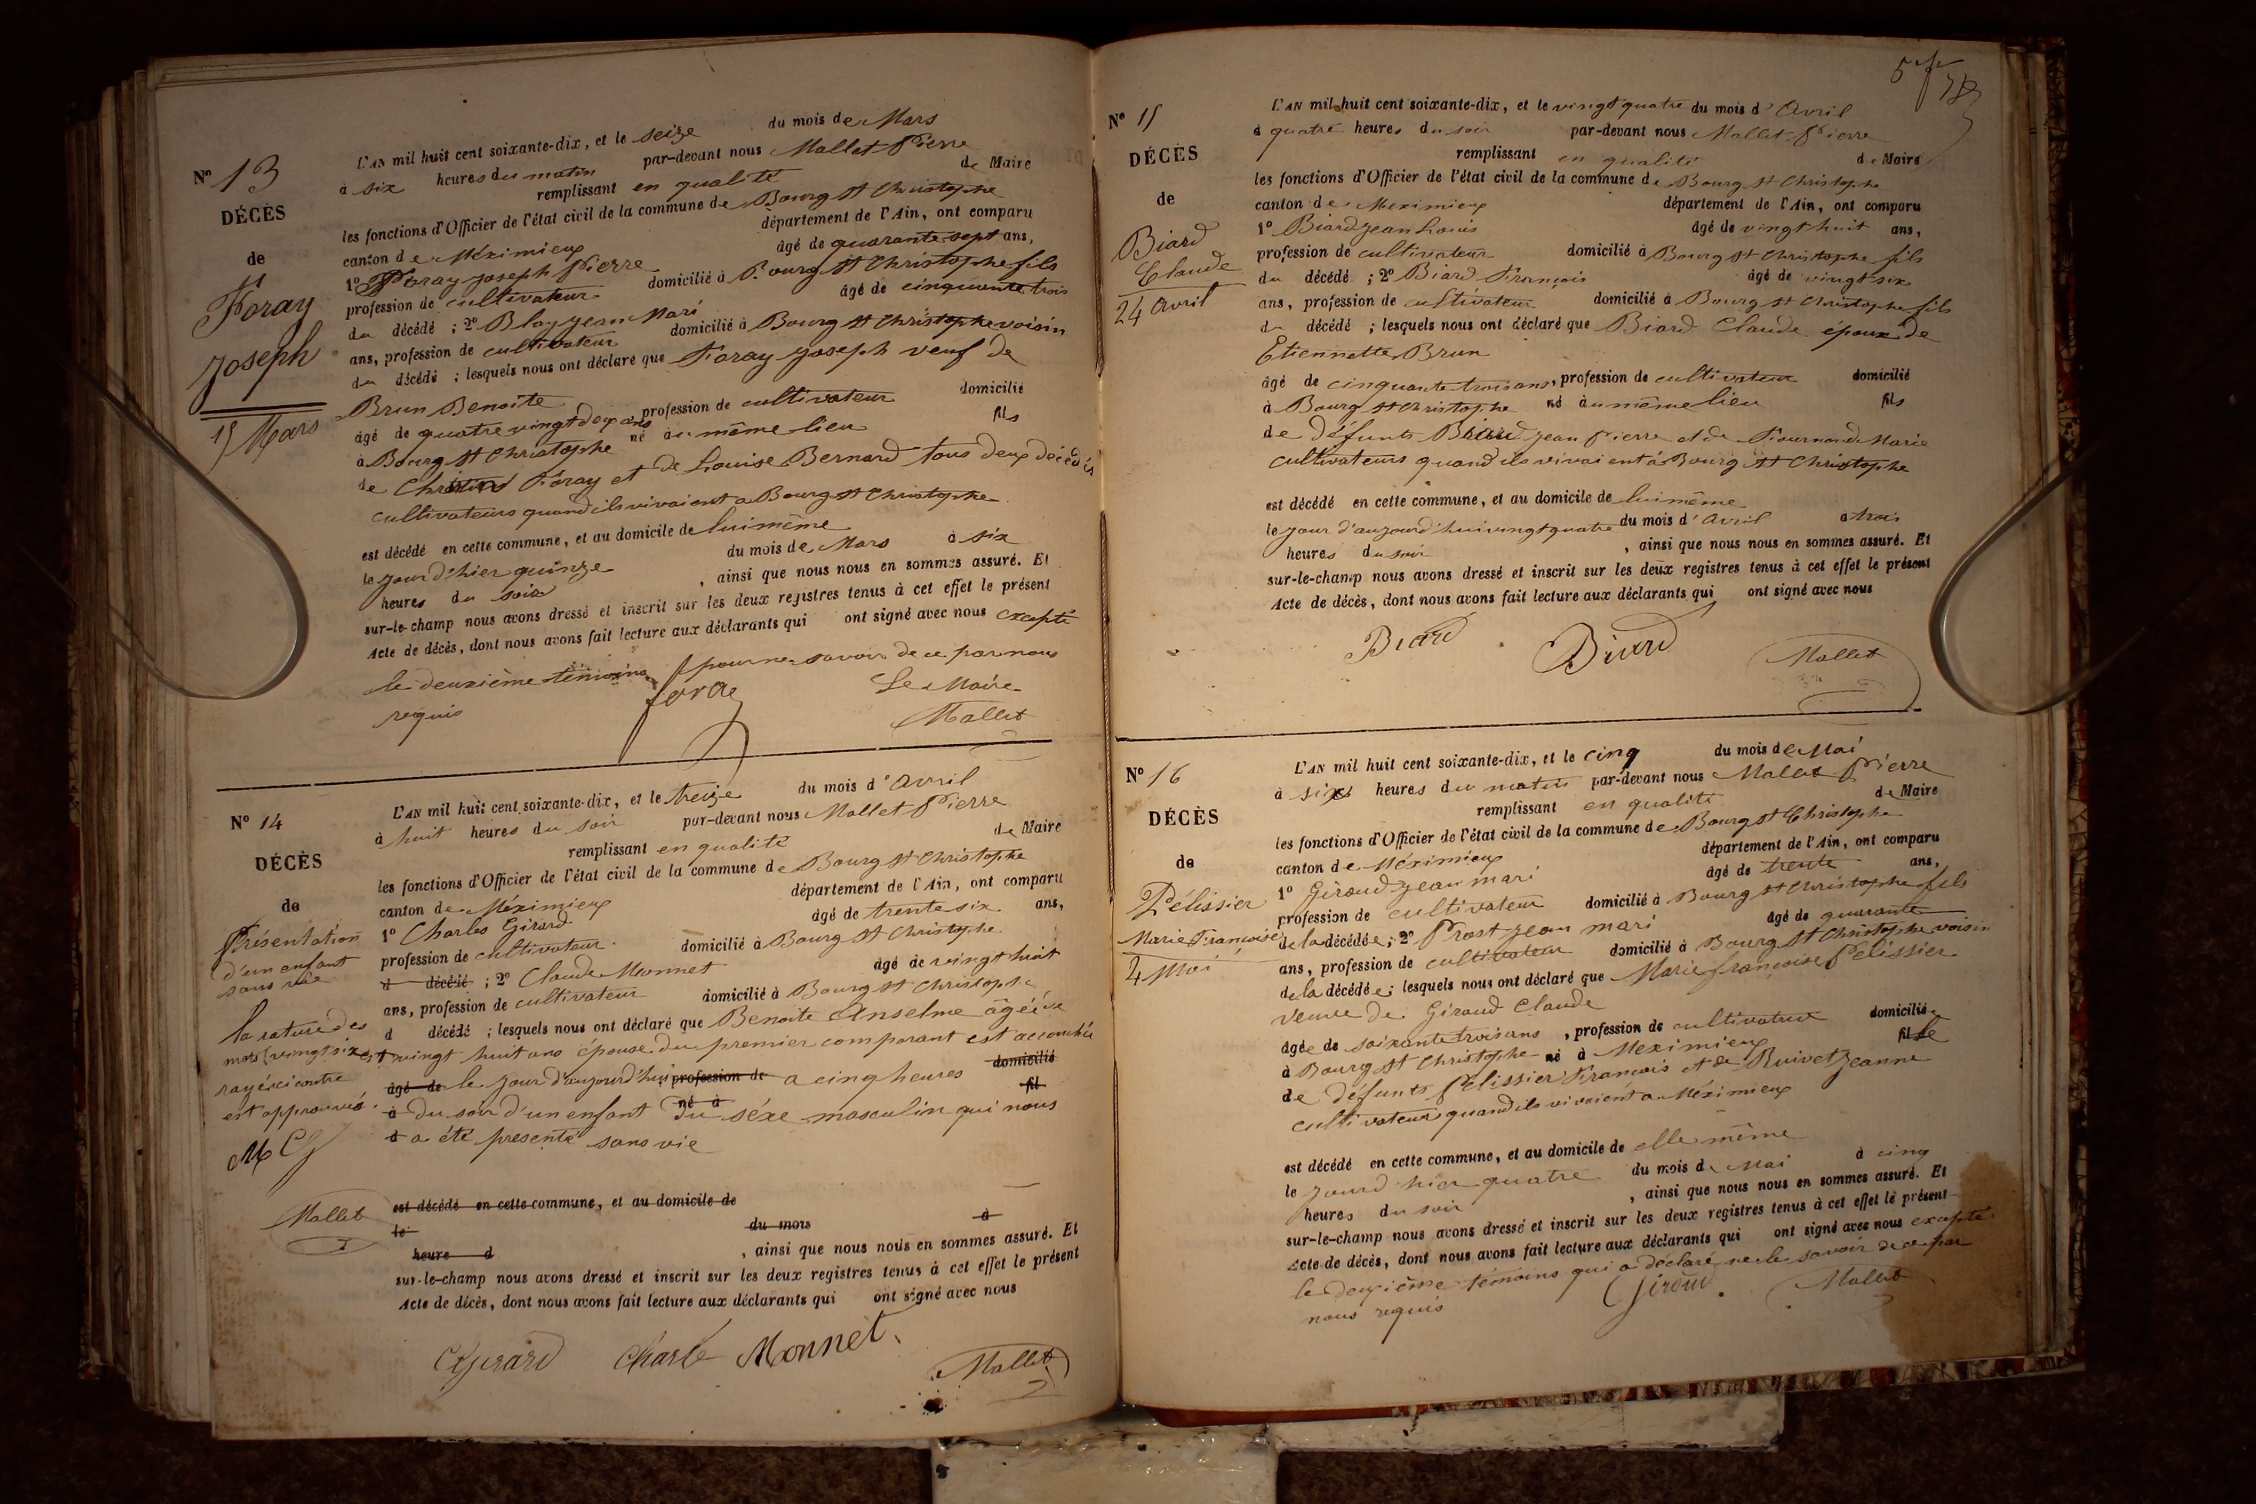 N° 13
DÉCÈS
de
Foray
Joseph
15 Mars
L'AN mil huit cent soixante-dix, et le seize du mois de Mars
à six heures du matin par-devant nous Mallet Pierre
remplissant en qualité de Maire
les fonctions d'Officier de l'état civil de la commune de Bourg St Christophe
canton de Méximieux département de l'Ain, ont comparu
1° Foray Joseph Pierre âgé de quarante sept ans,
profession de cultivateur domicilié à Bourg St Christophe fils
du décédé ; 2° Blay Jean Mari âgé de cinquante trois
ans, profession de cultivateur domicilié à Bourg St Christophe voisin
du décédé ; lesquels nous ont déclaré que Foray Joseph veuf de
Brun Benoite
âgé de quatre vingt deux ans profession de cultivateur domicilié
à Bourg St Christophe né au même lieu fils
de Foray et de Louise Bernard tous deux décédés
cultivateurs quand ils vivaient a Bourg St Christophe
est décédé en cette commune, et au domicile de lui même
le jour d'hier quinze du mois de Mars à six
heures du soir , ainsi que nous nous en sommes assuré. Et
sur-le-champ nous avons dressé et inscrit sur les deux registres tenus à cet effet le présent
Acte de décès, dont nous avons fait lecture aux déclarants qui ont signé avec nous excepté
le deuxième témoins pour ne savoir de ce par nous
requis foray Le Maire
Mallet
N° 14
DÉCÈS
de
Présentation
d'un enfant
sans vie
la rature des
mots vingt six
rayés ci contre
est approuvé
M C G
Mallet
L'AN mil huit cent soixante-dix, et le treize du mois d'Avril
à huit heures du soir par-devant nous Mallet Pierre
remplissant en qualité de Maire
les fonctions d'Officier de l'état civil de la commune de Bourg St Christophe
canton de Méximieux département de l'Ain, ont comparu
1° Charles Girard âgé de trente six ans,
profession de cultivateur domicilié à Bourg St Christophe
d décédé ; 2° Claude Monnet âgé de vingt huit
ans, profession de cultivateur domicilié à Bourg St Christophe
d décédé ; lesquels nous ont déclaré que Benoite Anselme âgée de
vingt huit ans épouse du premier comparant est accouchée
âgé de le jour d'aujourd'hui profession de a cinq heures domicilié
à du soir d'un enfant né à du séxe masculin qui nous fil
d a été présenté sans vie
est décédé en cette commune, et au domicile de
le du mois à
heure d , ainsi que nous nous en sommes assuré. Et
sur-le-champ nous avons dressé et inscrit sur les deux registres tenus à cet effet le présent
Acte de décès, dont nous avons fait lecture aux déclarants qui ont signé avec nous
Girard Charle Monnet
Mallet
N° 15
DÉCÈS
de
Biard
Claude
24 Avril
L'AN mil huit cent soixante-dix, et le vingt quatre du mois d'Avril
à quatre heures du soir par-devant nous Mallet Pierre
remplissant en qualité de Maire
les fonctions d'Officier de l'état civil de la commune de Bourg St Christophe
canton de Meximieux département de l'Ain, ont comparu
1° Biard Jean Louis âgé de vingt huit ans,
profession de cultivateur domicilié à Bourg St Christophe fils
du décédé ; 2° Biard François âgé de vingt six
ans, profession de cultivateur domicilié à Bourg St Christophe fils
du décédé ; lesquels nous ont déclaré que Biard Claude époux de
Etiennette Brun
âgé de cinquante trois ans, profession de cultivateur domicilié
à Bourg St Christophe né au même lieu fils
de défunts Biard Jean Pierre et de Marie
cultivateurs quand ils vivaient à Bourg St Christophe
est décédé en cette commune, et au domicile de lui même
le jour d'aujourd'hui vingt quatre du mois d'Avril à trois
heures du soir , ainsi que nous nous en sommes assuré. Et
sur-le-champ nous avons dressé et inscrit sur les deux registres tenus à cet effet le présent
Acte de décès, dont nous avons fait lecture aux déclarants qui ont signé avec nous
Biard Biard Mallet
N° 16
DÉCÈS
de
Pélissier
Marie Françoise
4 Mai
L'AN mil huit cent soixante-dix, et le cinq du mois de Mai
à six heures du matin par-devant nous Mallet Pierre
remplissant en qualité de Maire
les fonctions d'Officier de l'état civil de la commune de Bourg St Christophe
canton de Méximieux département de l'Ain, ont comparu
1° Giroud Jean mari âgé de trente ans,
profession de cultivateur domicilié à Bourg St Christophe fils
de la décédée ; 2° Prost Jean mari âgé de quarante
ans, profession de cultivateur domicilié à Bourg St Christophe voisin
de la décédée ; lesquels nous ont déclaré que Marie françoise Pélissier
veuve de Giroud Claude
âgée de soixante trois ans , profession de cultivatrice domicilié
à Bourg St Christophe né à Meximieux fille
de défunts Pélissier François et de Buivet Jeanne
cultivateurs quand ils vivaient a Méximieux
est décédé en cette commune, et au domicile de elle même
le jourd hier quatre du mois de Mai à cinq
heures du soir , ainsi que nous nous en sommes assuré. Et
sur-le-champ nous avons dressé et inscrit sur les deux registres tenus à cet effet le présent
Acte de décès, dont nous avons fait lecture aux déclarants qui ont signé avec nous excepté
le deuxième témoins qui a déclaré ne le savoir de ce par
nous requis Giroud Mallet